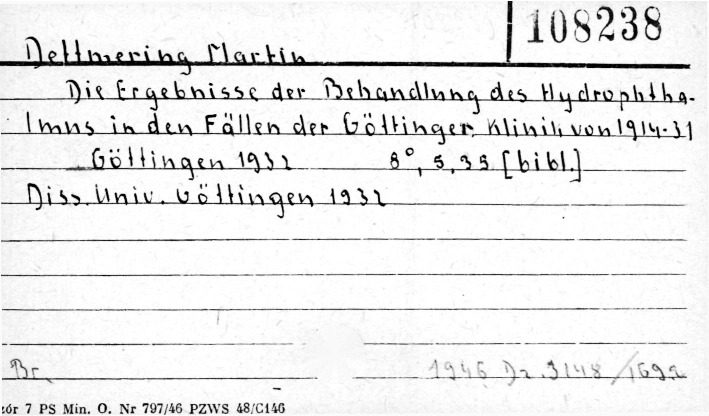 108238
Dettmering Martin
Die Ergebnisse der Behandlung des Hydrophtha-
lmus in den Fällen der Göttinger Klinik von 1914-31
Göttingen 1932 8°, S. 33 [bibl.]
Diss. Univ. Göttingen 1932
Br. 1946 Dz. 3148/1692
zór 7 PS Min. O. Nr 797/46 PZWS 48/C146